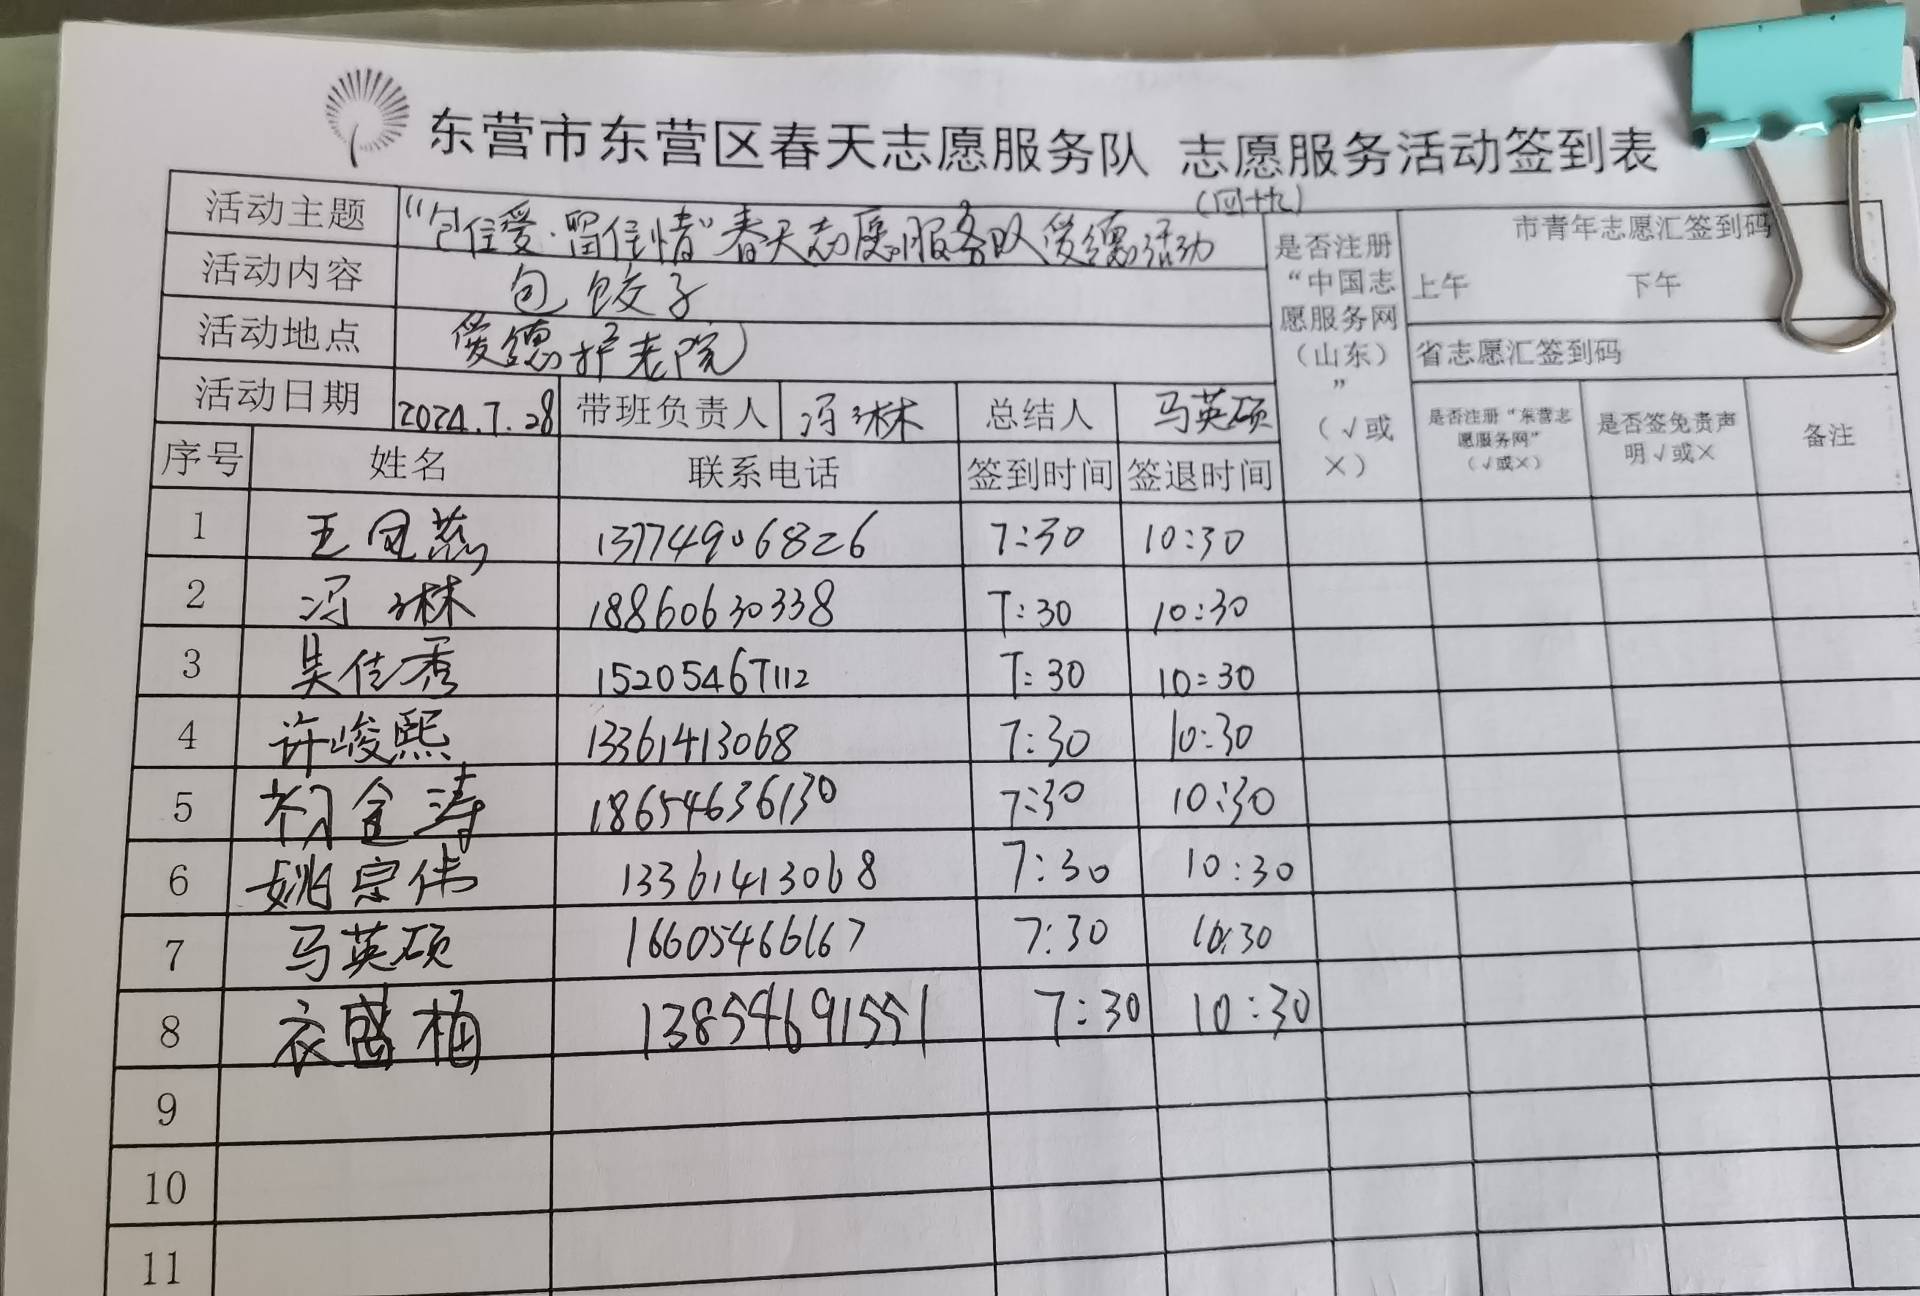 东营市东营区春天志愿服务队 志愿服务活动签到表
活动主题 “包住爱·留住情”春天志愿服务队爱德活动 (四十九)
活动内容 包饺子
活动地点 爱德护老院
活动日期 2024.7.28 带班负责人 冯琳 总结人 马英硕
是否注册“中国志愿服务网（山东）”（√或×）
市青年志愿汇签到码
上午 下午
省志愿汇签到码
是否注册“东营志愿服务网”（√或×） 是否签免责声明√或× 备注
序号 姓名 联系电话 签到时间 签退时间
1 王 13774906826 7:30 10:30
2 冯琳 18860630338 7:30 10:30
3 吴传秀 15205467112 7:30 10:30
4 许峻熙 13361413068 7:30 10:30
5 初金涛 18654636130 7:30 10:30
6 姚宗伟 13361413068 7:30 10:30
7 马英硕 16605466167 7:30 10:30
8 衣盛梅 13854691551 7:30 10:30
9
10
11